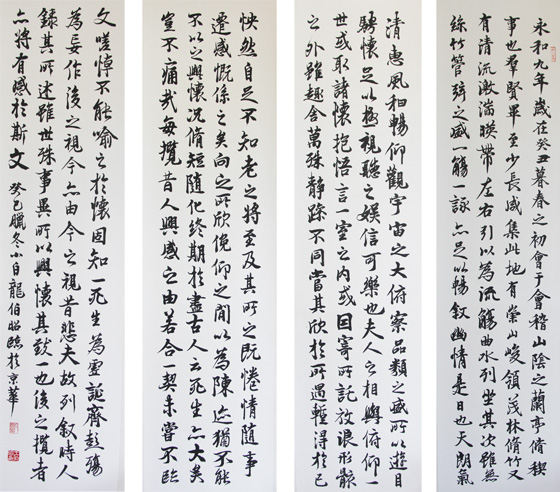 永和九年歲在癸丑暮春之初會于會稽山陰之蘭亭脩稧
事也羣賢畢至少長咸集此地有崇山峻領茂林脩竹又
有清流激湍暎帶左右引以為流觴曲水列坐其次雖無
絲竹管弦之盛一觴一詠亦足以暢敘幽情是日也天朗氣
清惠風和暢仰觀宇宙之大俯察品類之盛所以遊目
騁懷足以極視聽之娛信可樂也夫人之相與俯仰一
世或取諸懷抱悟言一室之內或因寄所託放浪形骸
之外雖趣舍萬殊靜躁不同當其欣於所遇暫得於己
怏然自足不知老之將至及其所之既惓情隨事
遷感慨係之矣向之所欣俛仰之間以為陳迹猶不能
不以之興懷況脩短隨化終期於盡古人云死生亦大矣
豈不痛哉每攬昔人興感之由若合一契未嘗不臨
文嗟悼不能喻之於懷固知一死生為虛誕齊彭殤
為妄作後之視今亦由今之視昔悲夫故列敘時人
錄其所述雖世殊事異所以興懷其致一也後之攬者
亦將有感於斯文 癸巳臘冬小白龍伯昭臨於京華